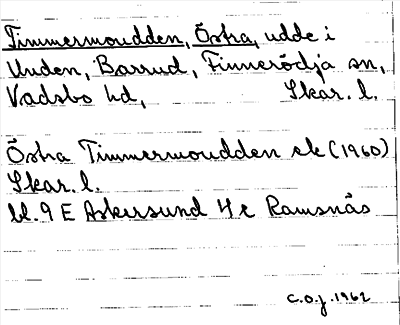 Timmermoudden, Östra, udde i
Unden, Barrud, Finnerödja sn,
Vadsbo hd, Skar. l.
Östra Timmermoudden ek (1960)
Skar. l.
bl. 9 E Askersund 4 c Ramsnäs
C.O.J. 1962